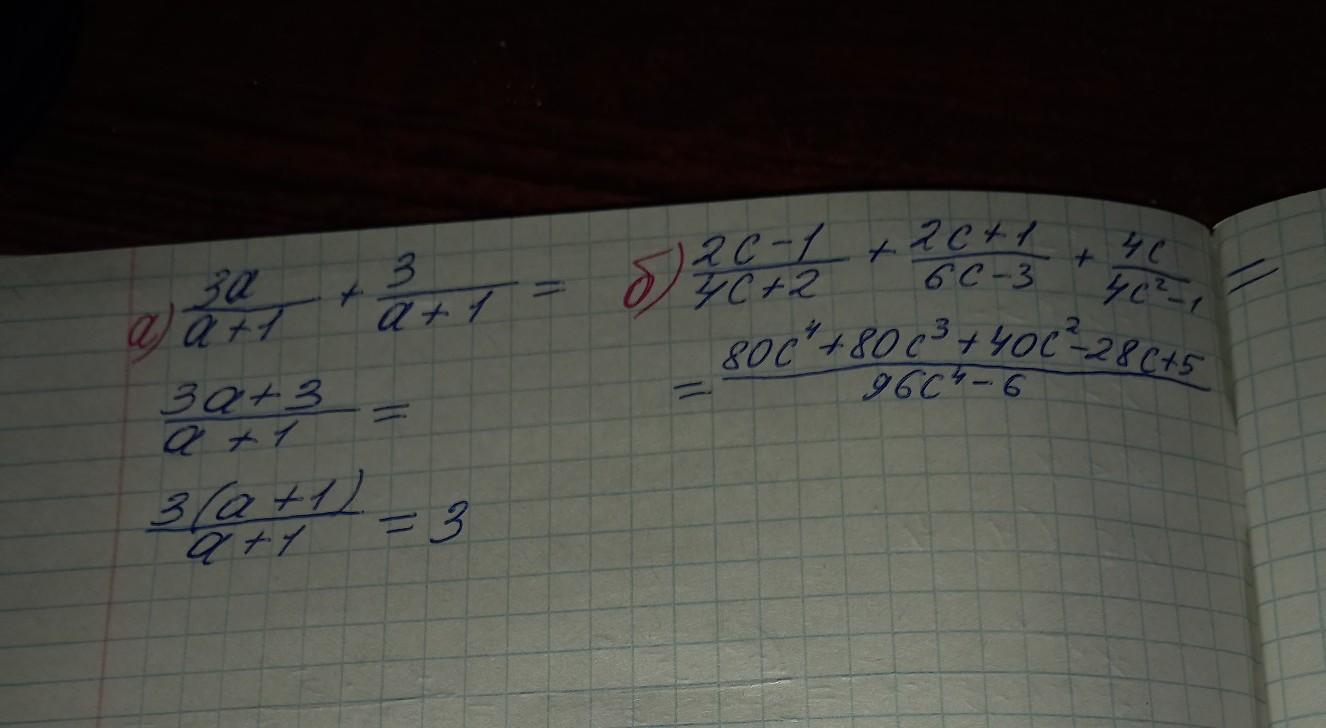 а) 3a/(a+1) + 3/(a+1) =
(3a+3)/(a+1) =
3(a+1)/(a+1) = 3
б) (2c-1)/(4c+2) + (2c+1)/(6c-3) + 4c/(4c²-1) =
= (80c⁴+80c³+40c²-28c+5)/(96c⁴-6)